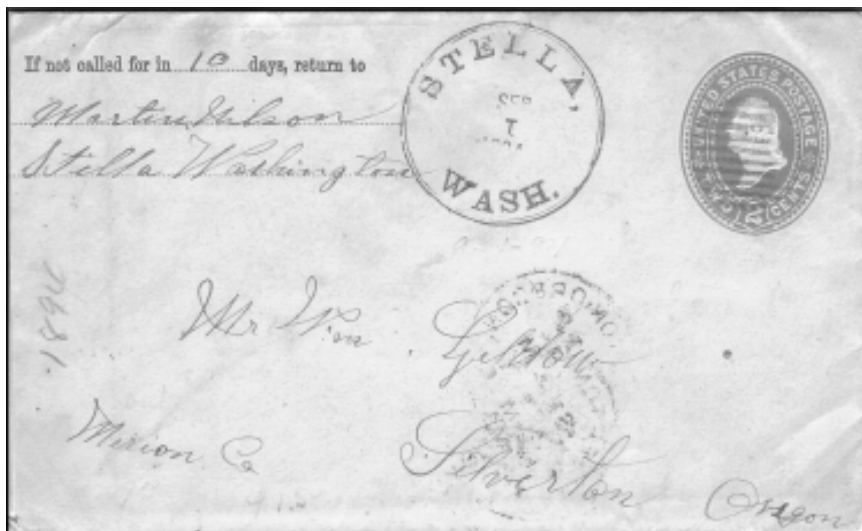 If not called for in 10 days, return to
Martin Nilson
Stella Washington
STELLA,
SEP
1
WASH.
UNITED STATES POSTAGE
TWO 2 CENTS
Mr Wm
Silverton
Marion Co
Oregon